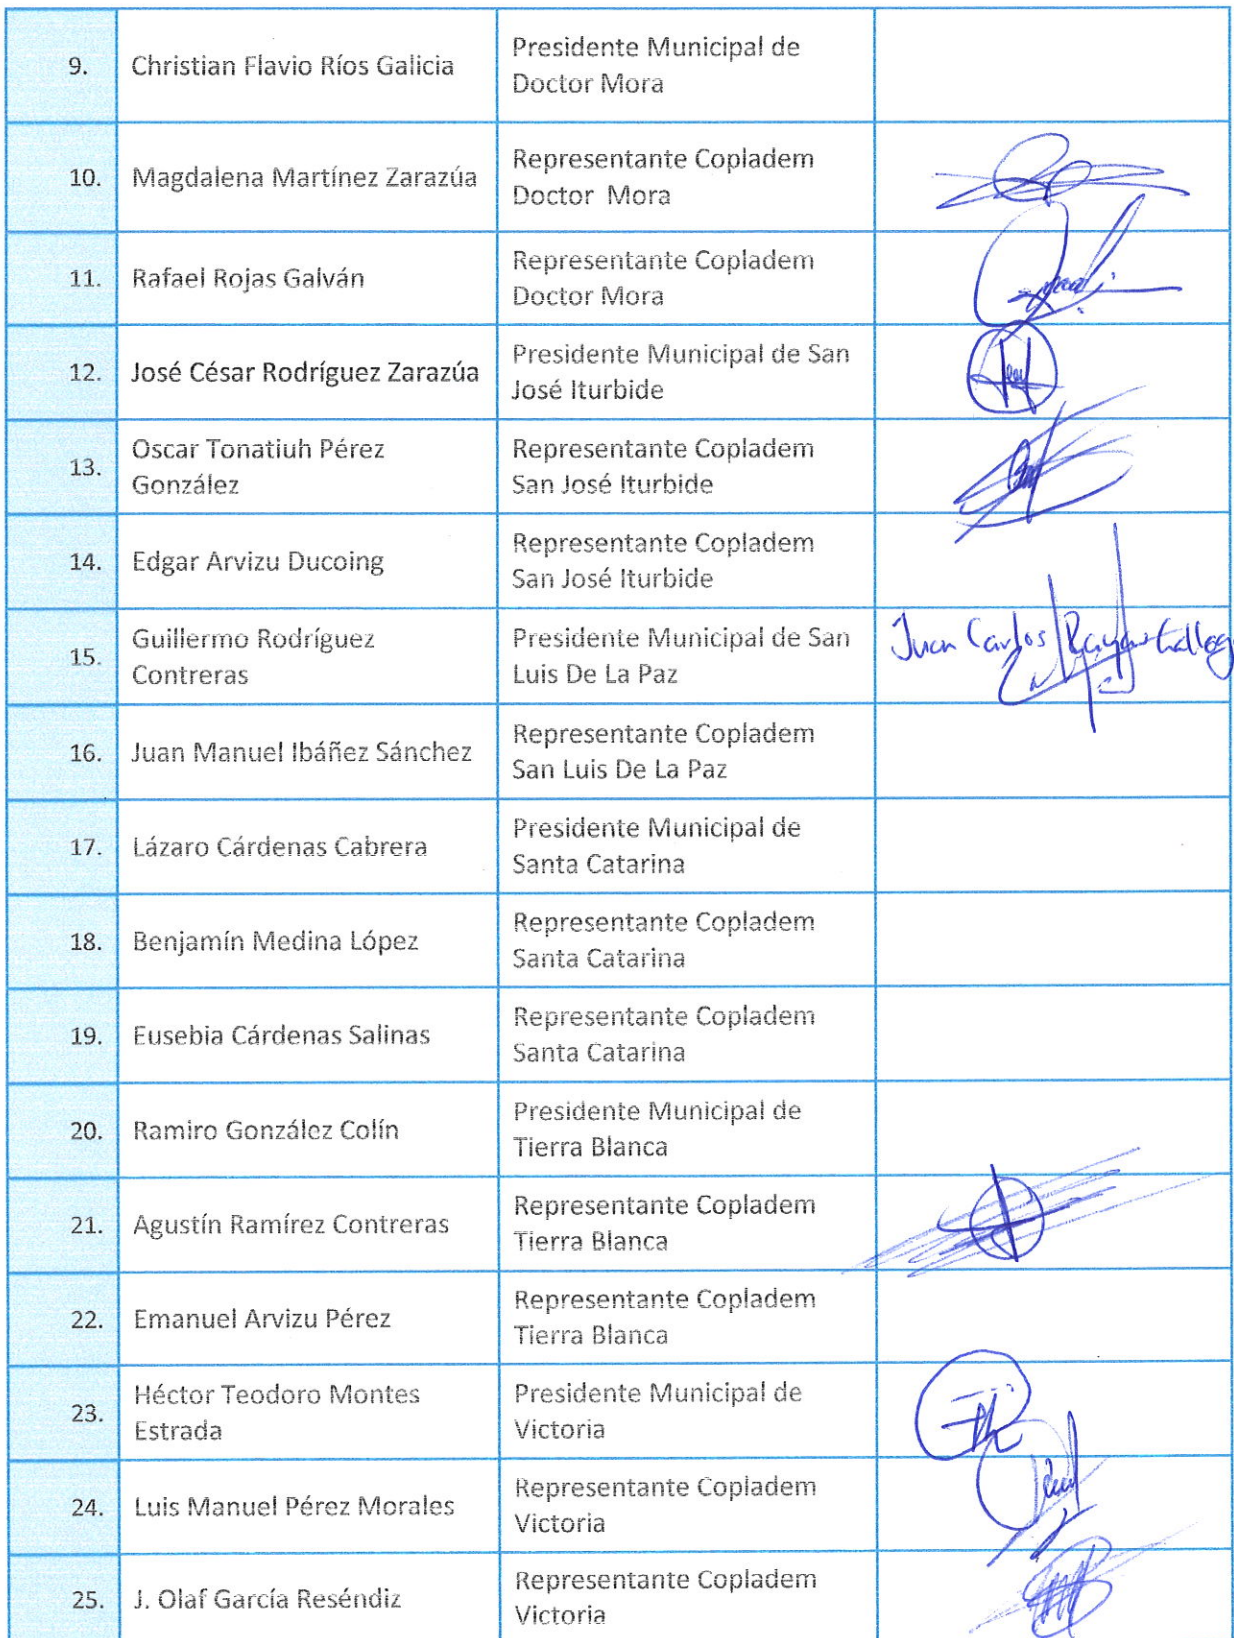 9. Christian Flavio Ríos Galicia Presidente Municipal de
Doctor Mora
10. Magdalena Martínez Zarazúa Representante Copladem
Doctor Mora
11. Rafael Rojas Galván Representante Copladem
Doctor Mora
12. José César Rodríguez Zarazúa Presidente Municipal de San
José Iturbide
13. Oscar Tonatiuh Pérez
González
Representante Copladem
San José Iturbide
14. Edgar Arvizu Ducoing Representante Copladem
San José Iturbide
15. Guillermo Rodríguez
Contreras
Presidente Municipal de San
Luis De La Paz
Juan Carlos
16. Juan Manuel Ibáñez Sánchez Representante Copladem
San Luis De La Paz
17. Lázaro Cárdenas Cabrera Presidente Municipal de
Santa Catarina
18. Benjamín Medina López Representante Copladem
Santa Catarina
19. Eusebia Cárdenas Salinas Representante Copladem
Santa Catarina
20. Ramiro González Colín Presidente Municipal de
Tierra Blanca
21. Agustín Ramírez Contreras Representante Copladem
Tierra Blanca
22. Emanuel Arvizu Pérez Representante Copladem
Tierra Blanca
23. Héctor Teodoro Montes
Estrada
Presidente Municipal de
Victoria
24. Luis Manuel Pérez Morales Representante Copladem
Victoria
25. J. Olaf García Reséndiz Representante Copladem
Victoria